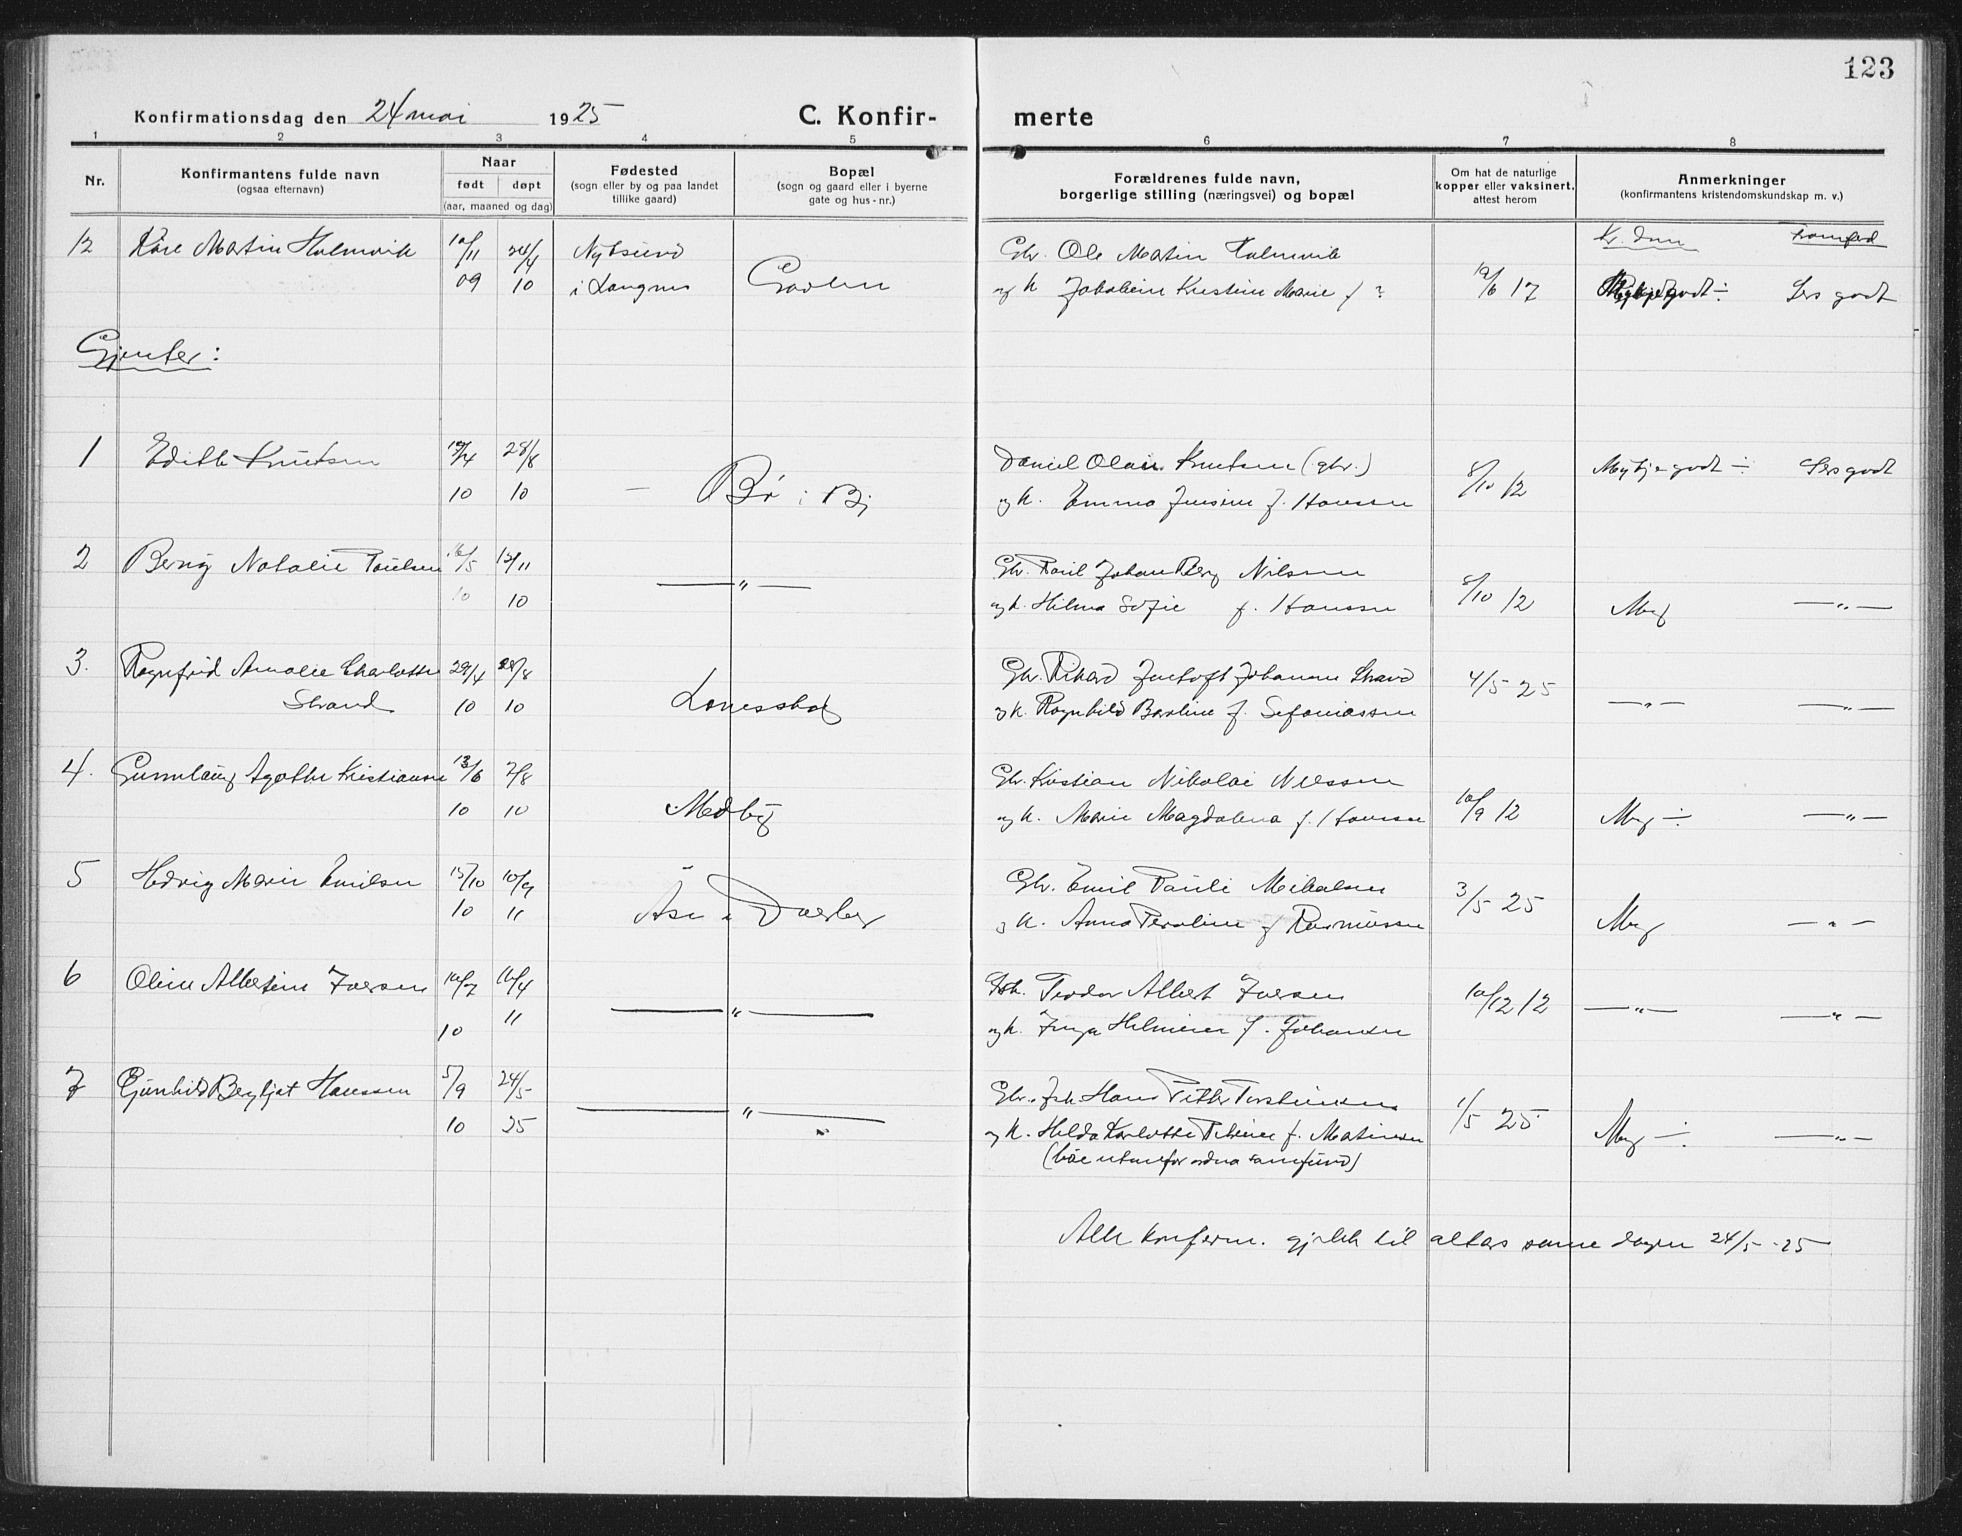 123
Konfirmationsdag den 24 mai 1925 C. Konfir- merte
1 2 3 4 5 6 7 8
Nr. Konfirmantens fulde navn (ogsaa efternavn) Naar født døpt (aar, maaned og dag) Fødested (sogn eller by og paa landet tillike gaard) Bopæl (sogn og gaard eller i byerne gate og hus-nr.) Forældrenes fulde navn, borgerlige stilling (næringsvei) og bopæl Om hat de naturlige kopper eller vaksinert, attest herom Anmerkninger (konfirmantens kristendomskundskap m. v.)
12 Kåre Martin Holmvik 24/4 Gbr. Ole Martin Holmvik
09 10 og k Kristine Marie f ? 17 Sers godt
Gjenter:
1 Edith Knutsen 28/8 Daniel Olai Knutsen (gbr.) 8/10 12 Mykje godt ÷ Sers godt
10 10 — Bø i Bj og k. Emma Jensine f. Hanssen
2 Natalie Paulsen 16/5 13/11 —"— Gbr. Paul Johan Berg Nilsen 8/10 12
10 10 og k. Hilma Sofie f. Hanssen Mkg —"—
3. Ragnfrid Amalie Charlotte 29/4 28/8 Gbr. Rikard Johannes Strand 4/5 25
Strand 10 10 og k. Ragnhild Bertine f. Sefaniassen —"— —"—
4. Gunnlaug Agathe Kristiansen 13/6 7/8 Gbr. Kristian Nikolai Nilssen
10 10 Medby og k. Marie Magdalena f. Hanssen 10/9 12 Mkg ÷ —"—
5 Hedvig Marie Emilsen 15/10 10/9 Gbr. Emil Pauli Mikalsen 3/5 25
10 11 Åse i Dverberg og k. Anna Petroline f Rasmussen Mkg —"—
6 Oline Albertine Iversen 16/4 —"— Teodor Albert Iversen 10/12 12 —"— —"—
10 11 og k. Inga Helmine f. Johansen
7 Gunhild Bergljot Hanssen 5/9 24/5 —"— Gbr. Joh. Hans Petter Torstensen 1/5 25
10 25 og k. Hilda Karlotte f. Matinsen Mkg ÷ —"—
(båe utanfor ordna samfund)
Alle konferm. gjekk til altars same dagen 24/5 -25